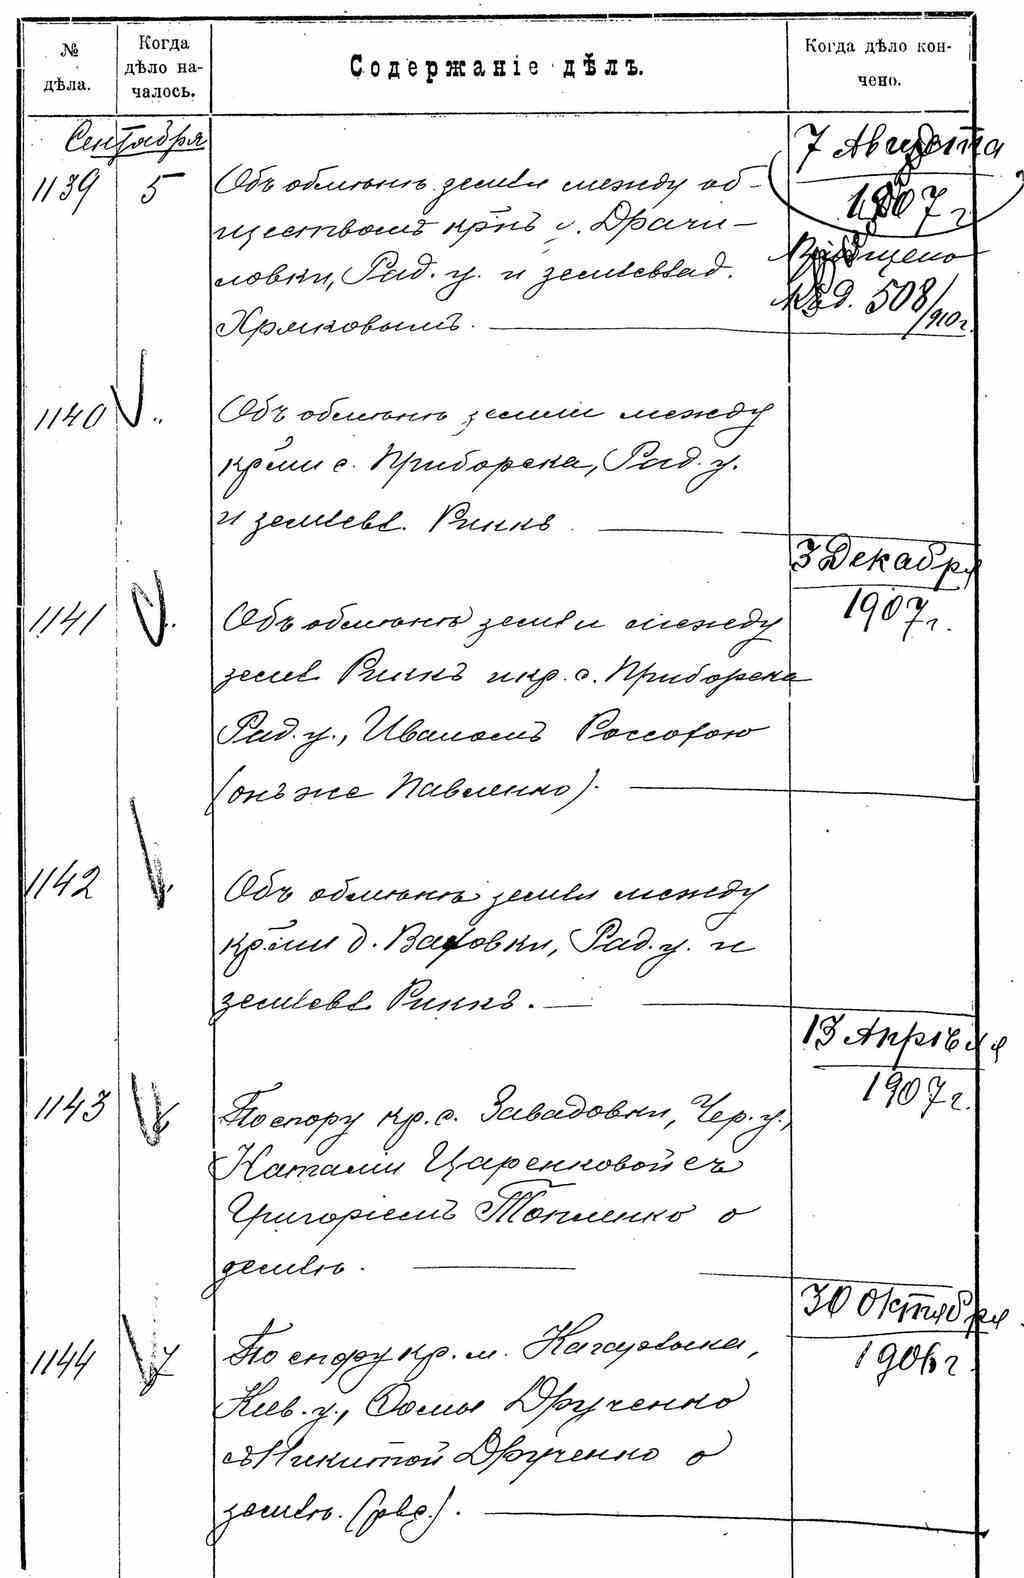 № дѣла.
Когда дѣло началось.
Содержаніе дѣлъ.
Когда дѣло кончено.
Сентября
1139 5 Объ обмѣнѣ земли между об-
ществомъ крнъ с. Драчи-
ловки, Рад. у. и землевлад.
Хряковымъ.
7 Августа
1907 г
508/910 г.
1140 „ Объ обмѣнѣ земли между
крми с. Приборска, Рад. у.
и землевл. Риккъ
3 Декабря
1907 г.
1141 „ Объ обмѣнѣ земли между
земл Риккъ и кр. с. Приборска
Рад. у., Иваномъ Россохою
(онъ же Павленко).
1142 „ Объ обмѣнѣ земли между
крми д. Ваховки, Рад. у. и
землевл Риккъ.
13 Апрѣля
1907 г.
1143 По спору кр. с. Завадовки, Чер. у.,
Наталіи Царенковой съ
Григоріемъ Топленко о
землѣ.
30 Октября
1906 г
1144 7 По спору кр. м. Кагарлыка,
Кіев. у., Ѳомы Друченко
съ Никитой Друченко о
землѣ.